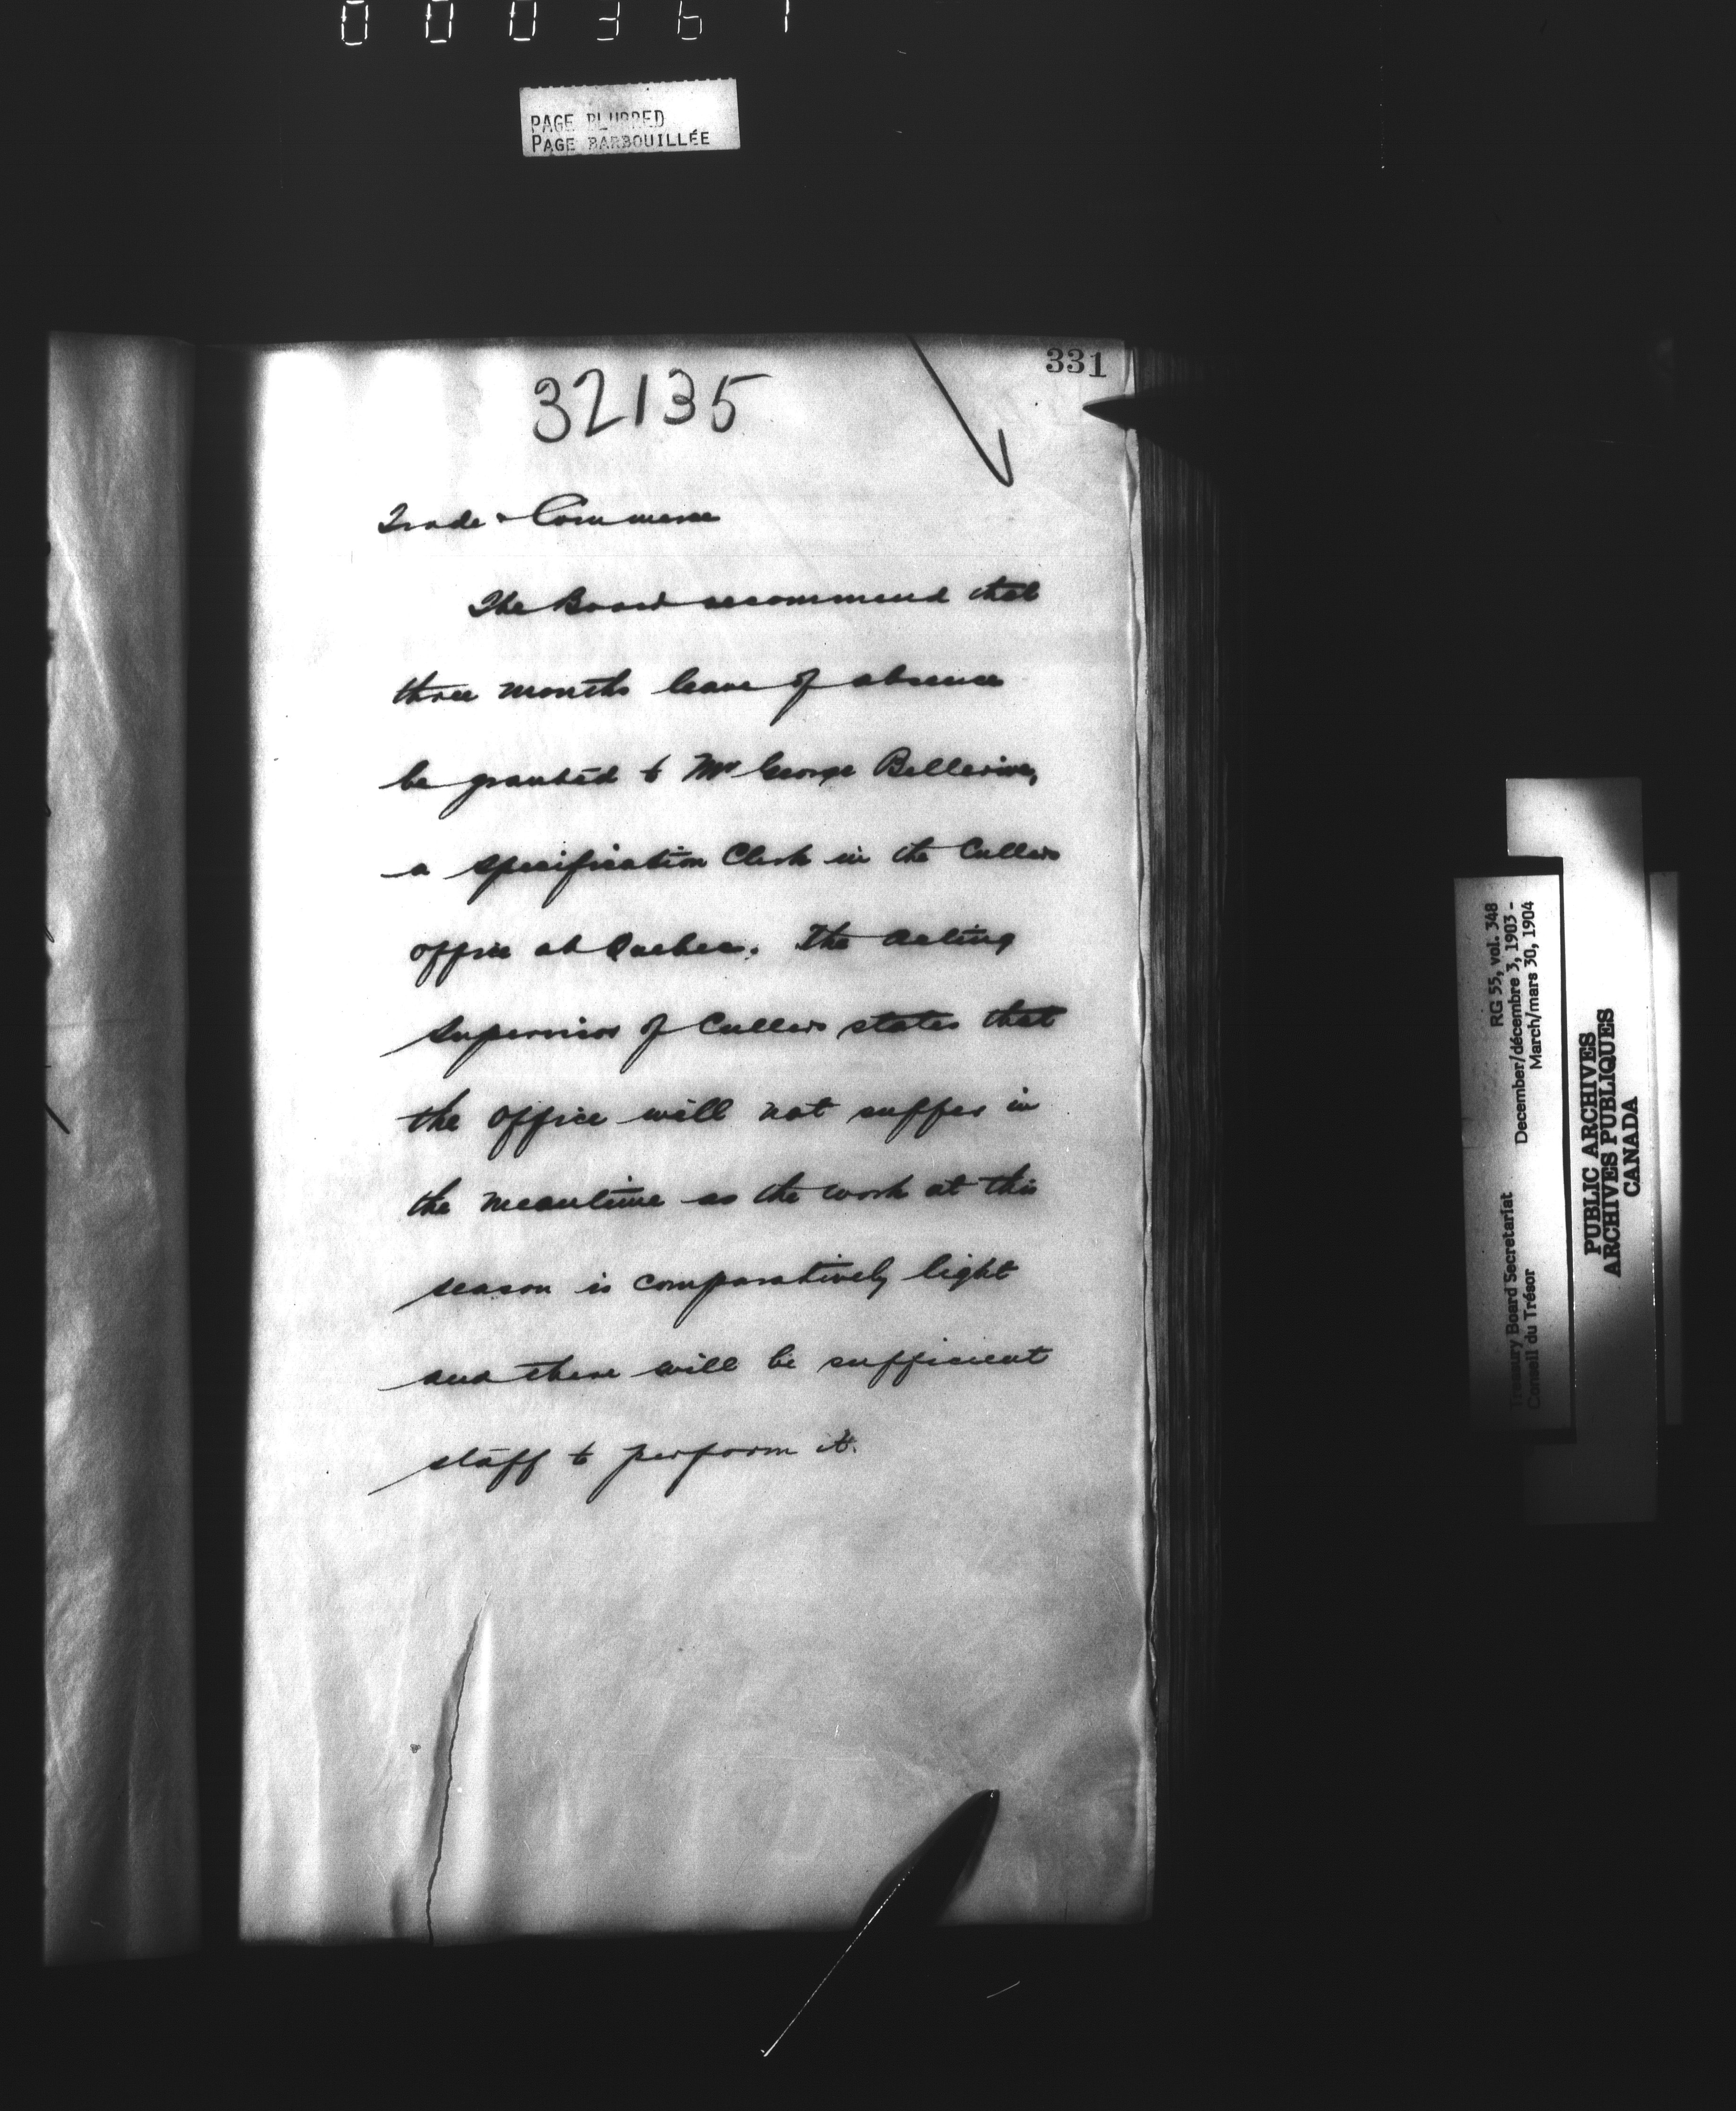 000361
PAGE BLURRED
PAGE BARBOUILLÉE
331
32135
Trade & Commerce
The Board recommend that
three months leave of absence
be granted to Mr George Bellerive,
a specification Clerk in the Cullers
office at Quebec. The acting
Supervisor of Cullers states that
the office will not suffer in
the meantime as the work at this
season is comparatively light
and there will be sufficient
staff to perform it.
Treasury Board Secretariat RG 55, vol. 348
Conseil du Trésor December/décembre 3, 1903 -
March/mars 30, 1904
PUBLIC ARCHIVES
ARCHIVES PUBLIQUES
CANADA